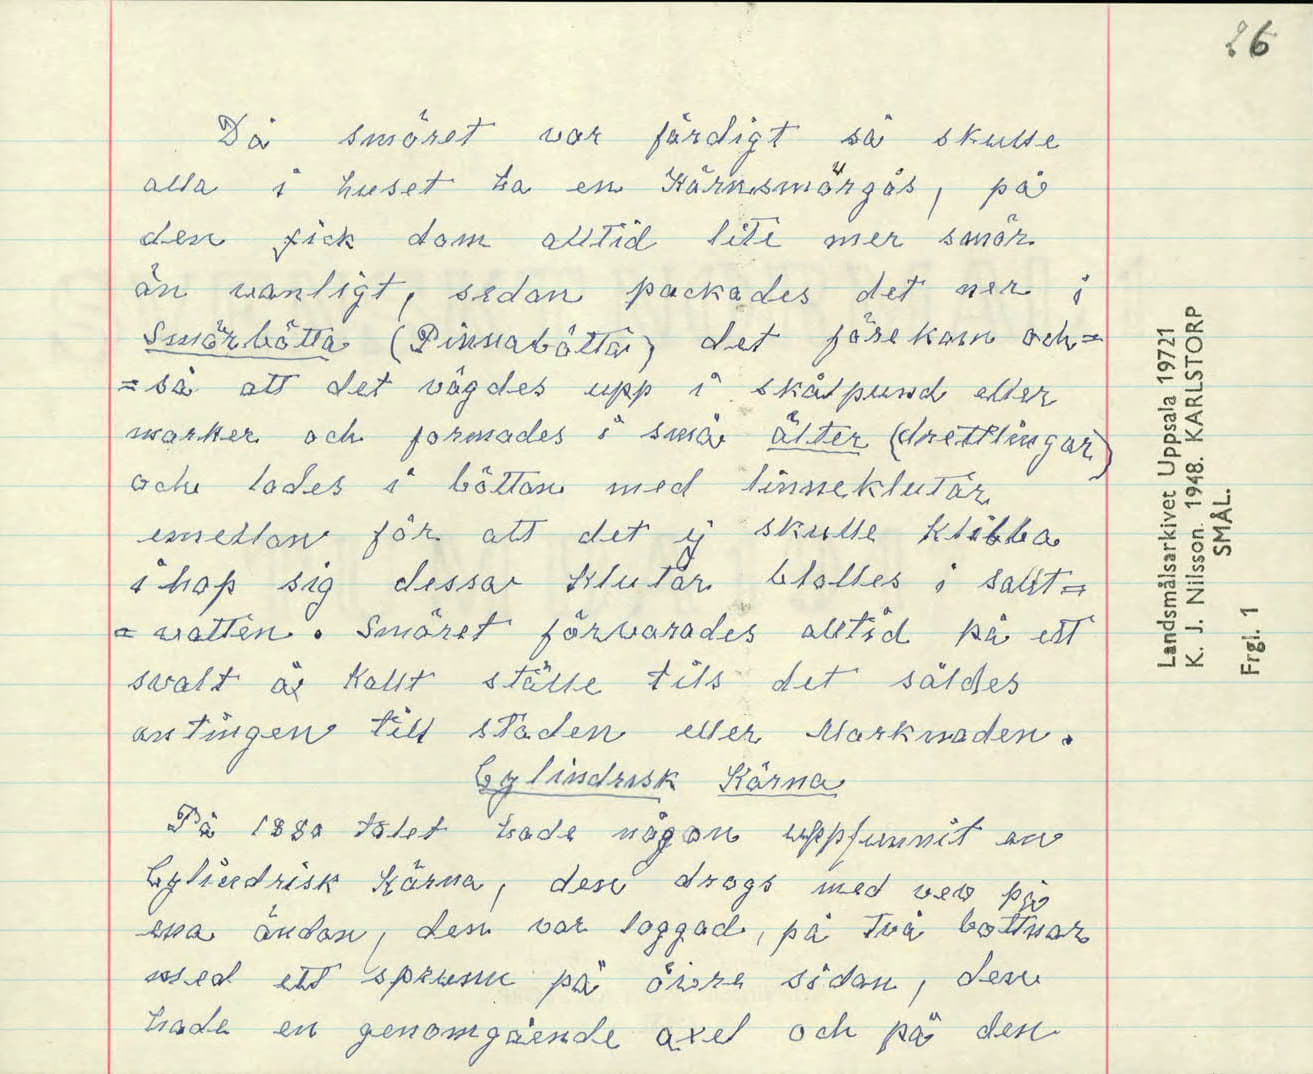 26
Då smöret var färdigt så skulle
alla i huset ha en Kärnsmörgås, på
den fick dom alltid lite mer smör
än vanligt, sedan packades det ner i
Smörbötta (Pinnabötta) det förekom och=
=så att det vägdes upp i skålpund eller
marker och formades i små älter (drettlingar)
och lades i böttan med linneklutar
emellan för att det ej skulle klibba
ihop sig dessa klutar blottes i salt=
=vatten. Smöret förvarades alltid på ett
svalt å kallt ställe tils det såldes
antingen till staden eller Marknaden.
Cylindrisk Kärna
På 1880 talet hade någon uppfunnit en
Cylindrisk Kärna, den drogs med vev på
ena ändan, den var laggad, på två bottnar
med ett sprunn på övre sidan, den
hade en genomgående axel och på den
Landsmålsarkivet Uppsala 19721
K. J. Nilsson. 1948. KARLSTORP
SMÅL.
Frgl. 1